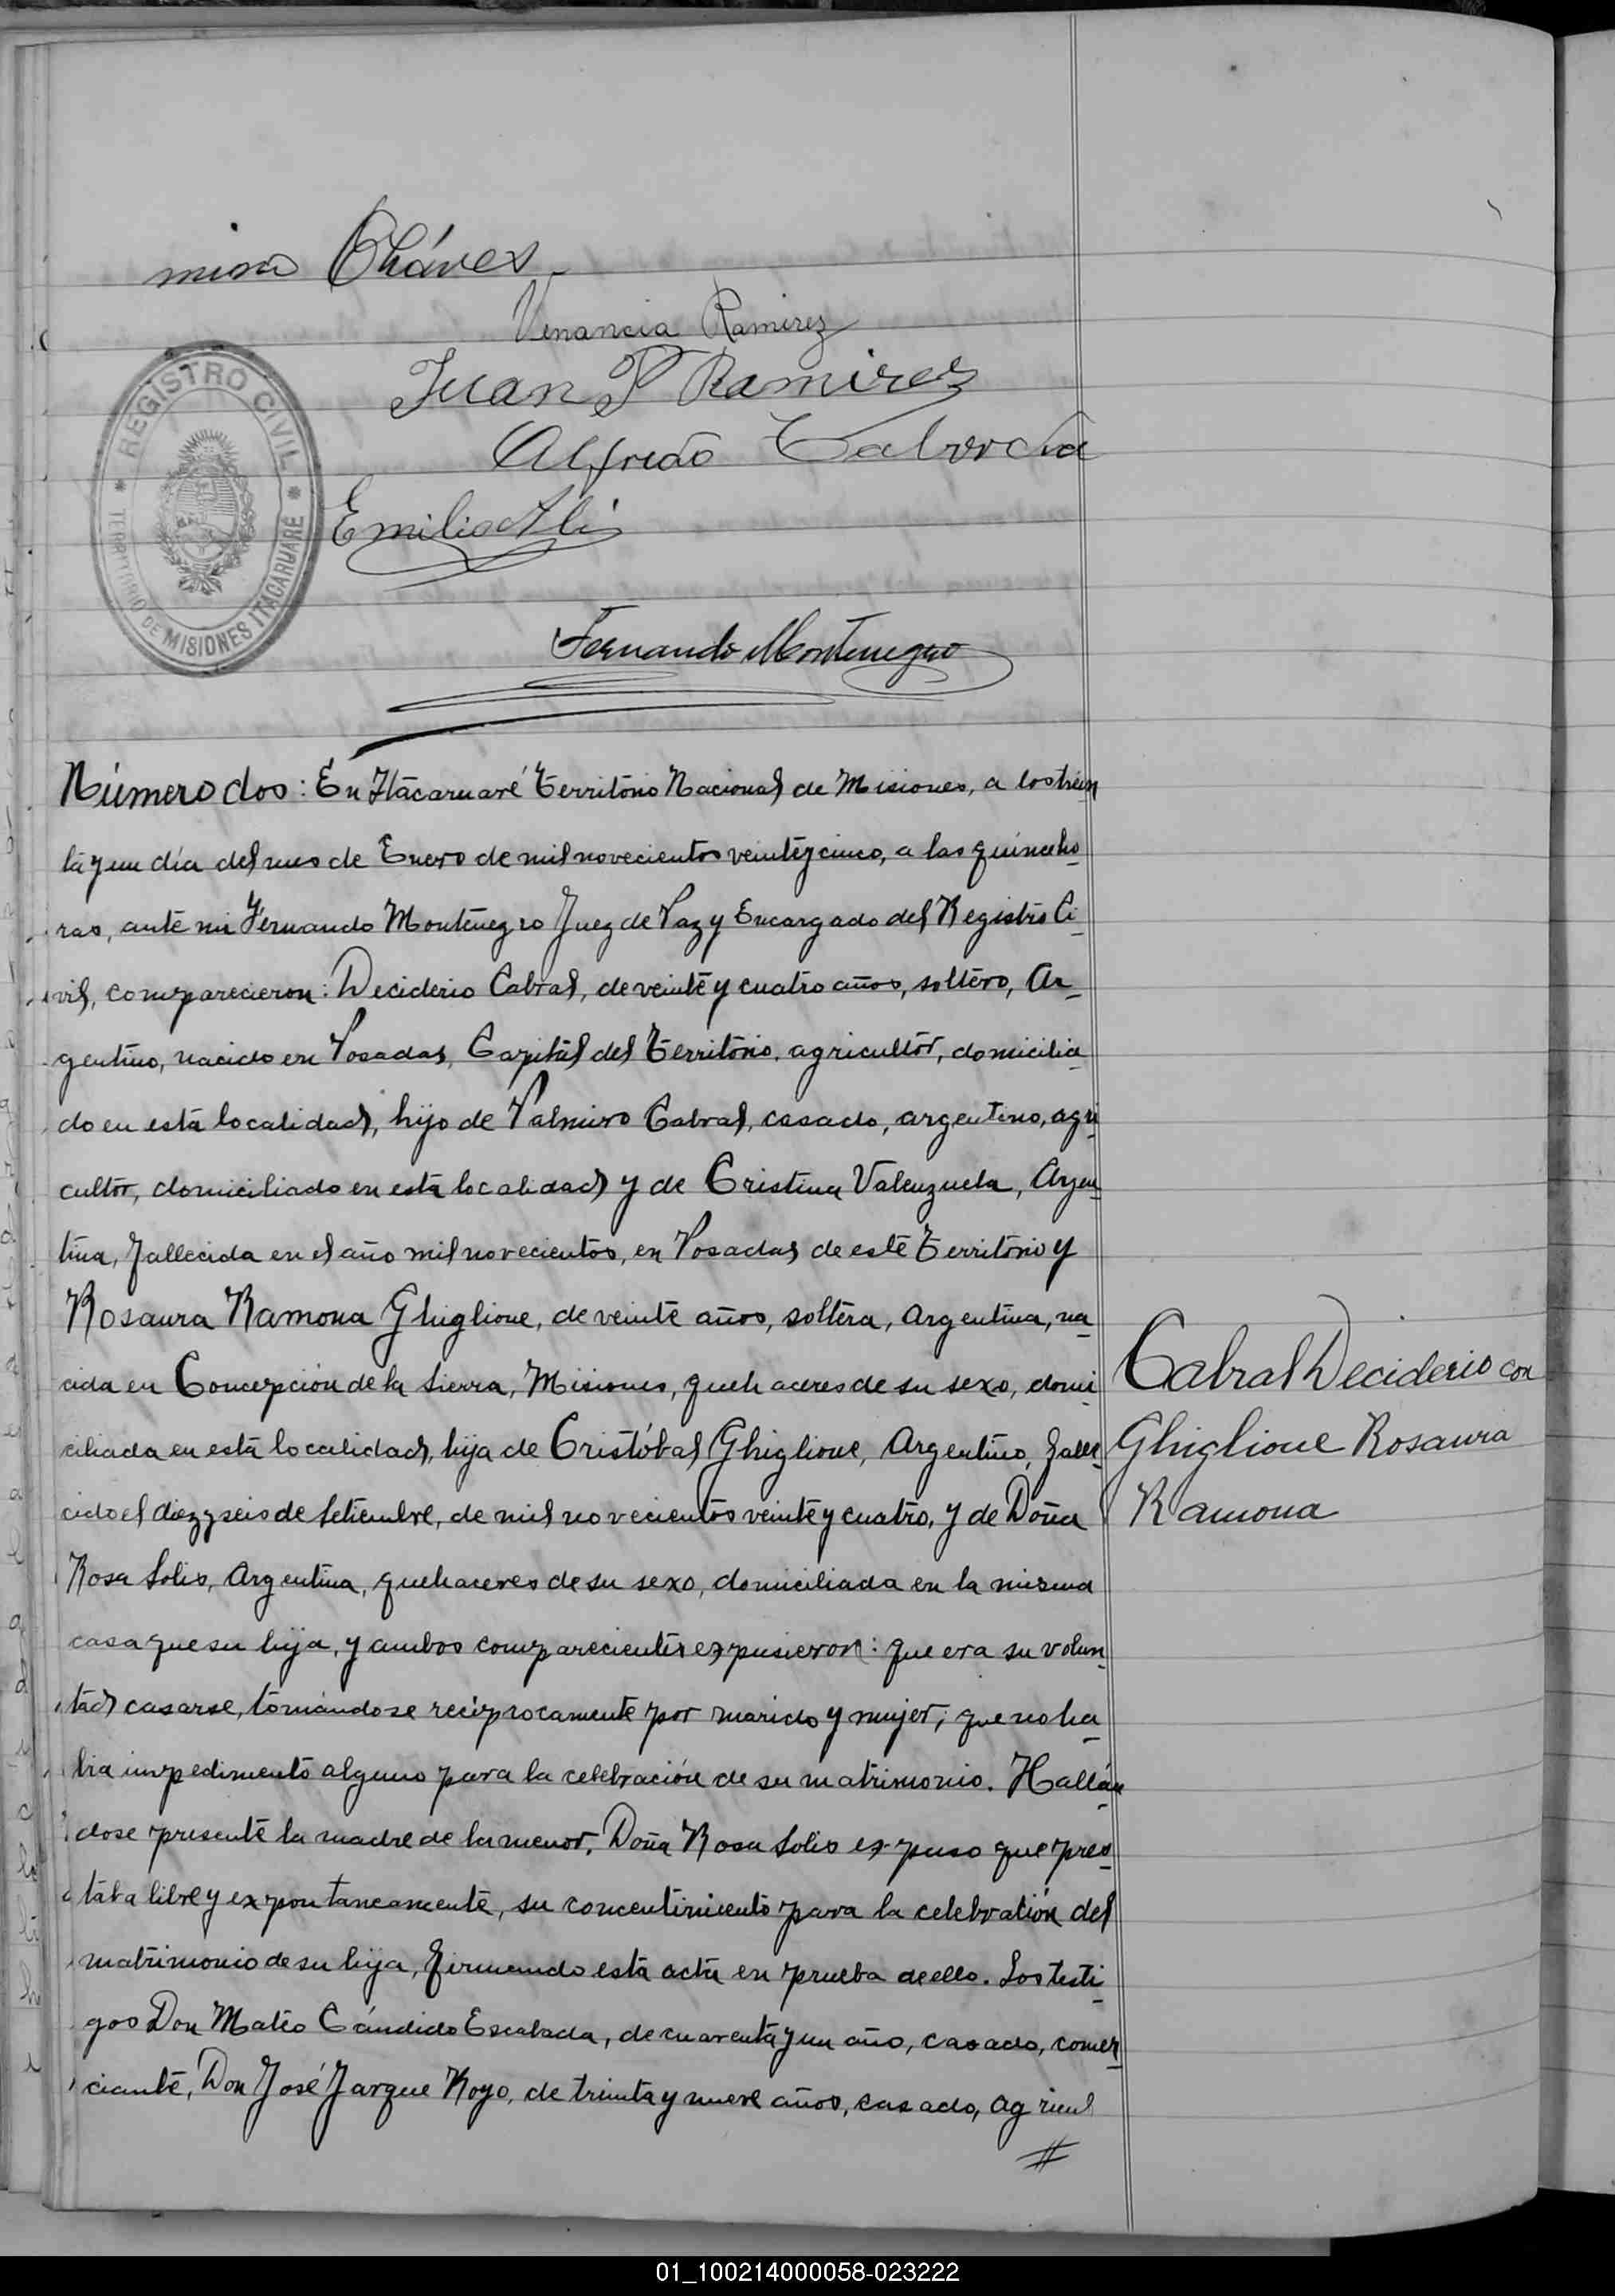 mino Cháves
Venancia Ramirez
Juan P Ramirez
Alfredo
Emilio Ali
REGISTRO CIVIL
TERRITORIO DE MISIONES ITACARUARE
Fernando Montenegro
Número dos: En Itacaruaré Territorio Nacional de Misiones, a los trein
ta y un día del mes de Enero de mil novecientos veinte y cinco, a las quince ho-
ras, ante mi Fernando Montenegro Juez de Paz y Encargado del Registro Ci-
vil, comparecieron: Deciderio Cabral, de veinte y cuatro años, soltero, Ar-
gentino, nacido en Posadas, Capital del Territorio, agricultor, domicilia-
do en esta localidad, hijo de Palmiro Cabral, casado, argentino, agri-
cultor, domiciliado en esta localidad y de Cristina Valenzuela, Argen-
tina, fallecida en el año mil novecientos, en Posadas de este Territorio y
Rosaura Ramona Ghiglione, de veinte años, soltera, Argentina, na-
cida en Concepción de la Sierra, Misiones, quehaceres de su sexo, domi-
ciliada en esta localidad, hija de Cristóbal Ghiglione, Argentino, falle-
cido el diez y seis de Setiembre, de mil novecientos veinte y cuatro, y de Doña
Rosa Solis, Argentina, quehaceres de su sexo, domiciliada en la misma
casa que su hija, y ambos comparecientes expusieron: que era su volun-
tad casarse, tomándose recíprocamente por marido y mujer; que no ha-
bia impedimento alguno para la celebración de su matrimonio. Hallán-
dose presente la madre de la menor, Doña Rosa Solis expuso que pres-
taba libre y expontaneamente, su concentimiento para la celebración del
matrimonio de su hija, firmando esta acta en prueba de ello. Los testi-
gos Don Mateo Cándido Escalada, de cuarenta y un año, casado, comer-
ciante, Don José Jarque Royo, de treinta y nueve años, casado, agricul
#
Cabral Deciderio con
Ghiglione Rosaura
Ramona
01_100214000058-023222